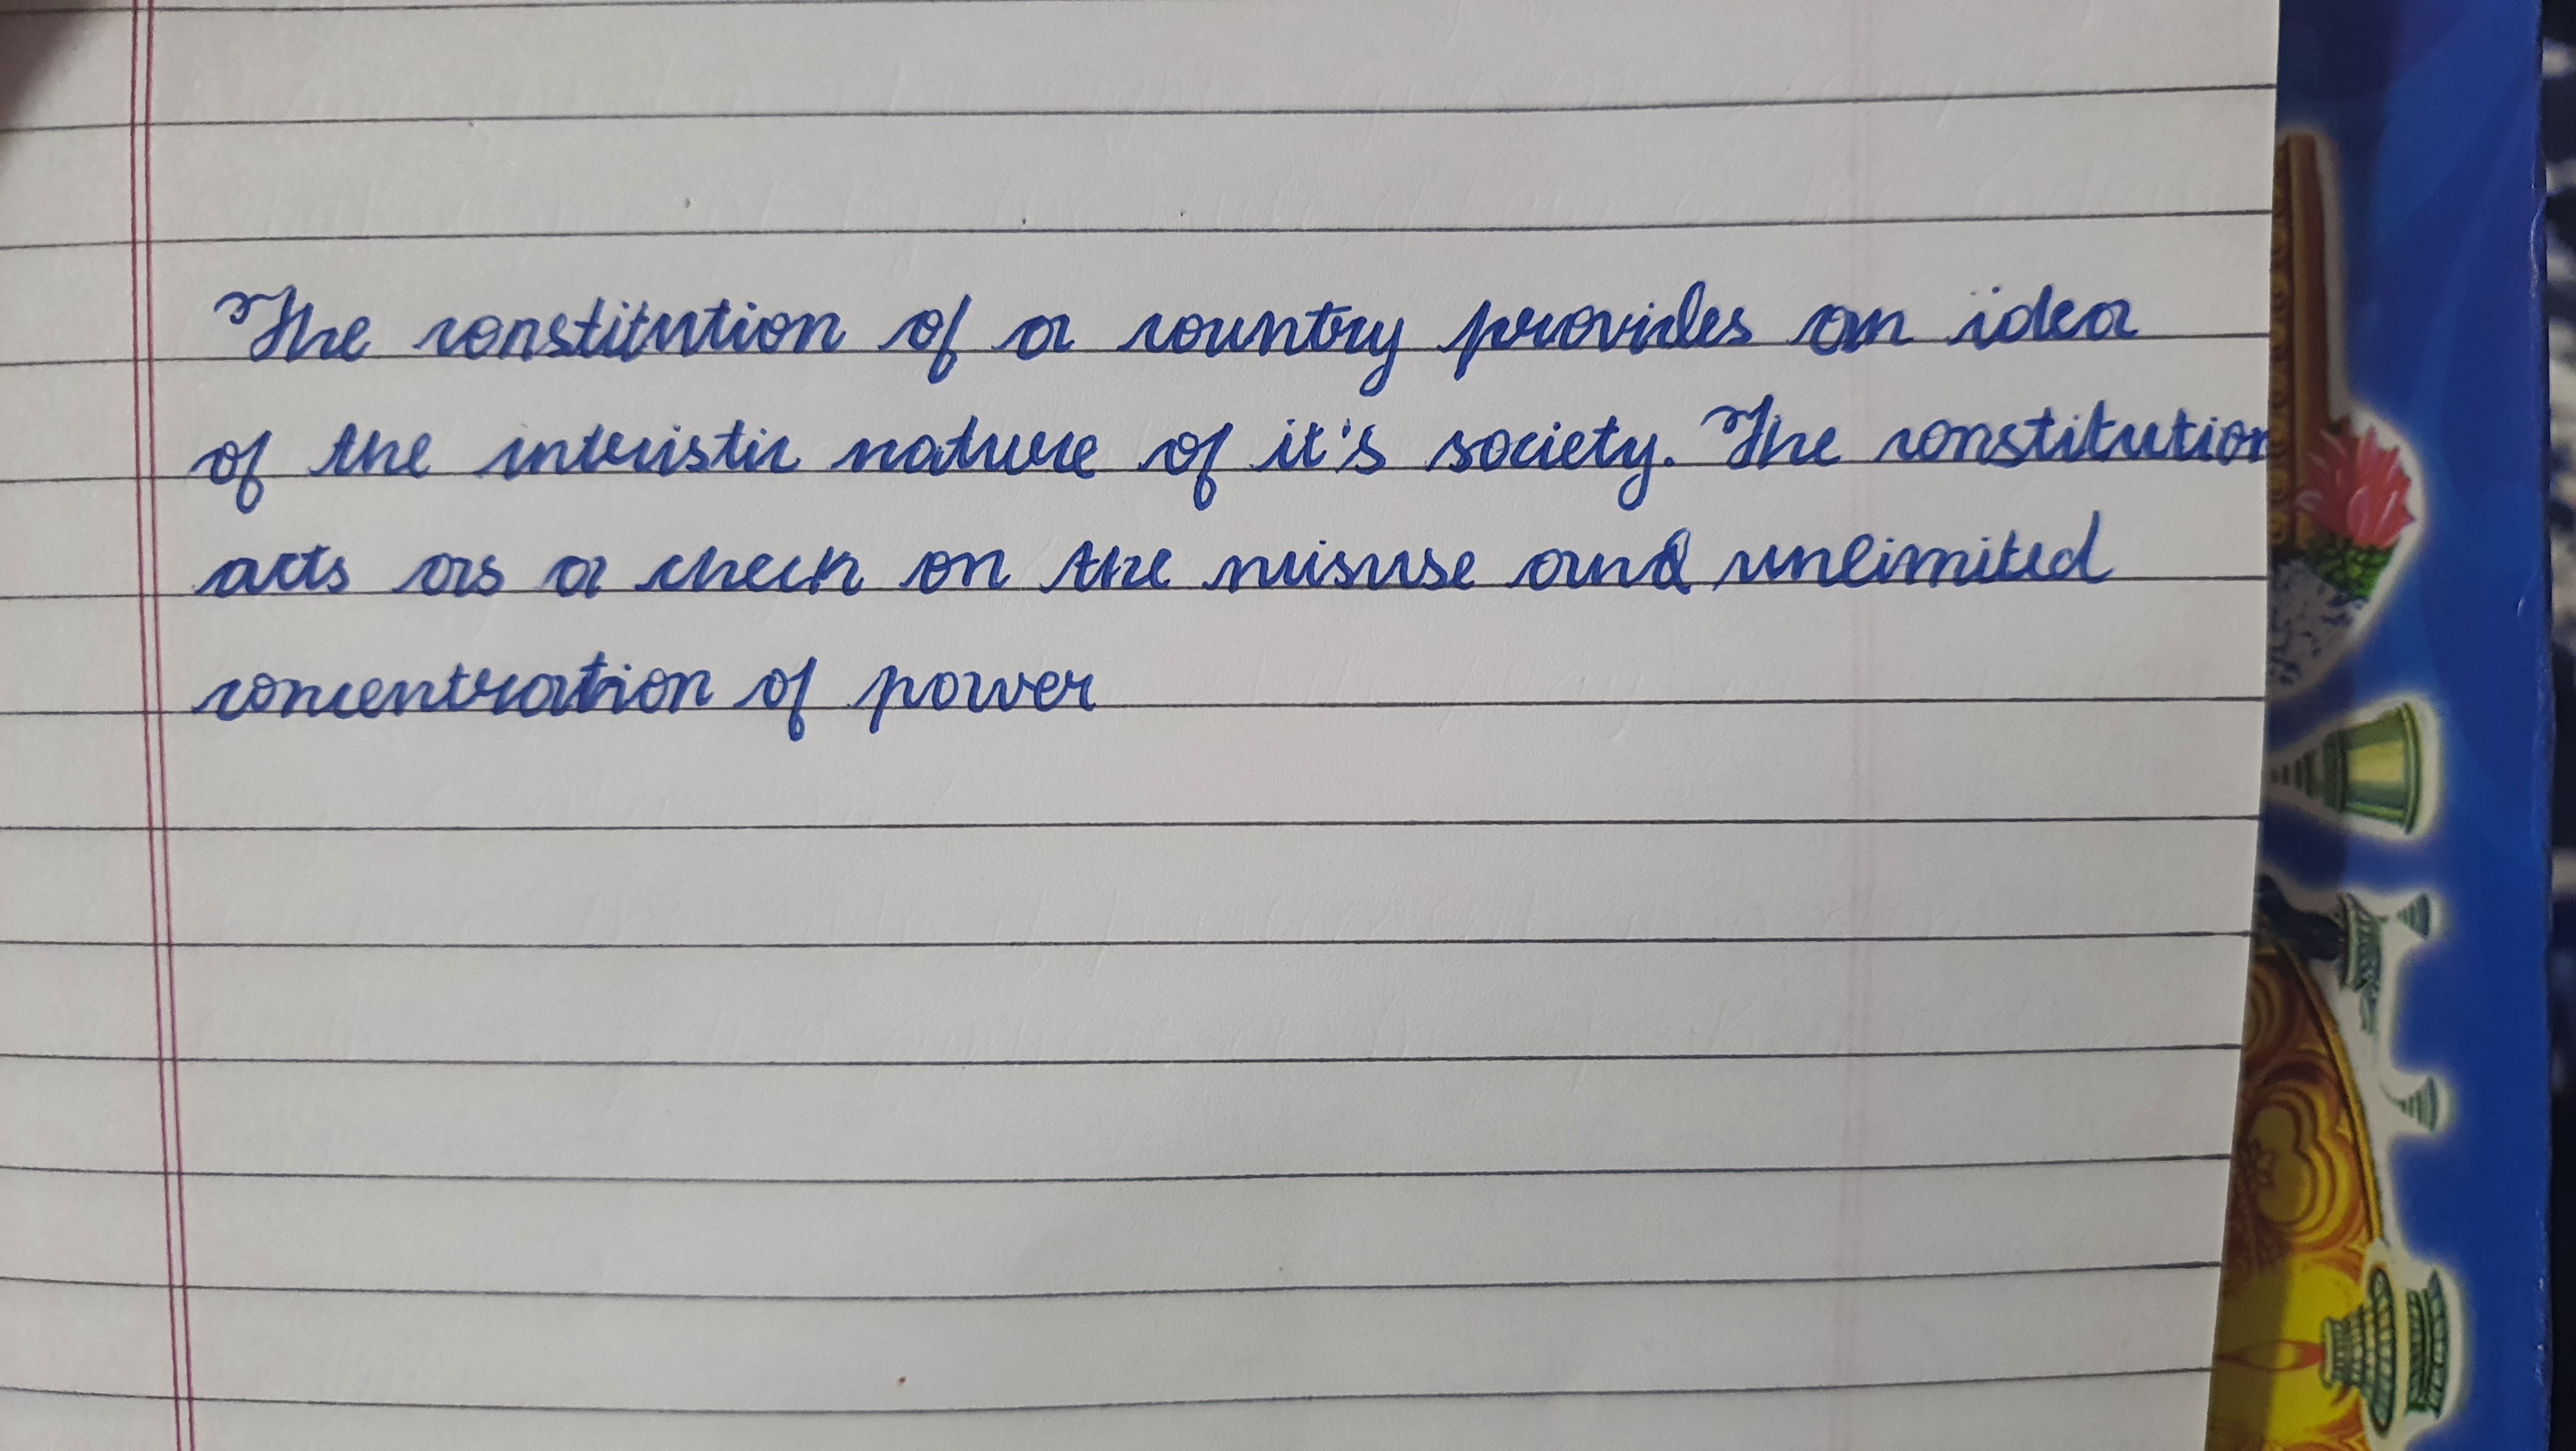 The constitution of a country provides an idea
of the interistic nature of it's society. The constitution
acts as a check on the misuse and unlimited
concentration of power